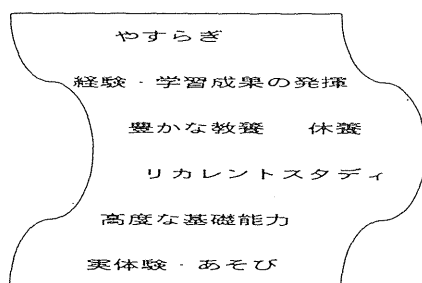 やすらぎ
経験・学習成果の発揮
豊かな教養　休養
リカレントスタディ
高度な基礎能力
実体験・あそび